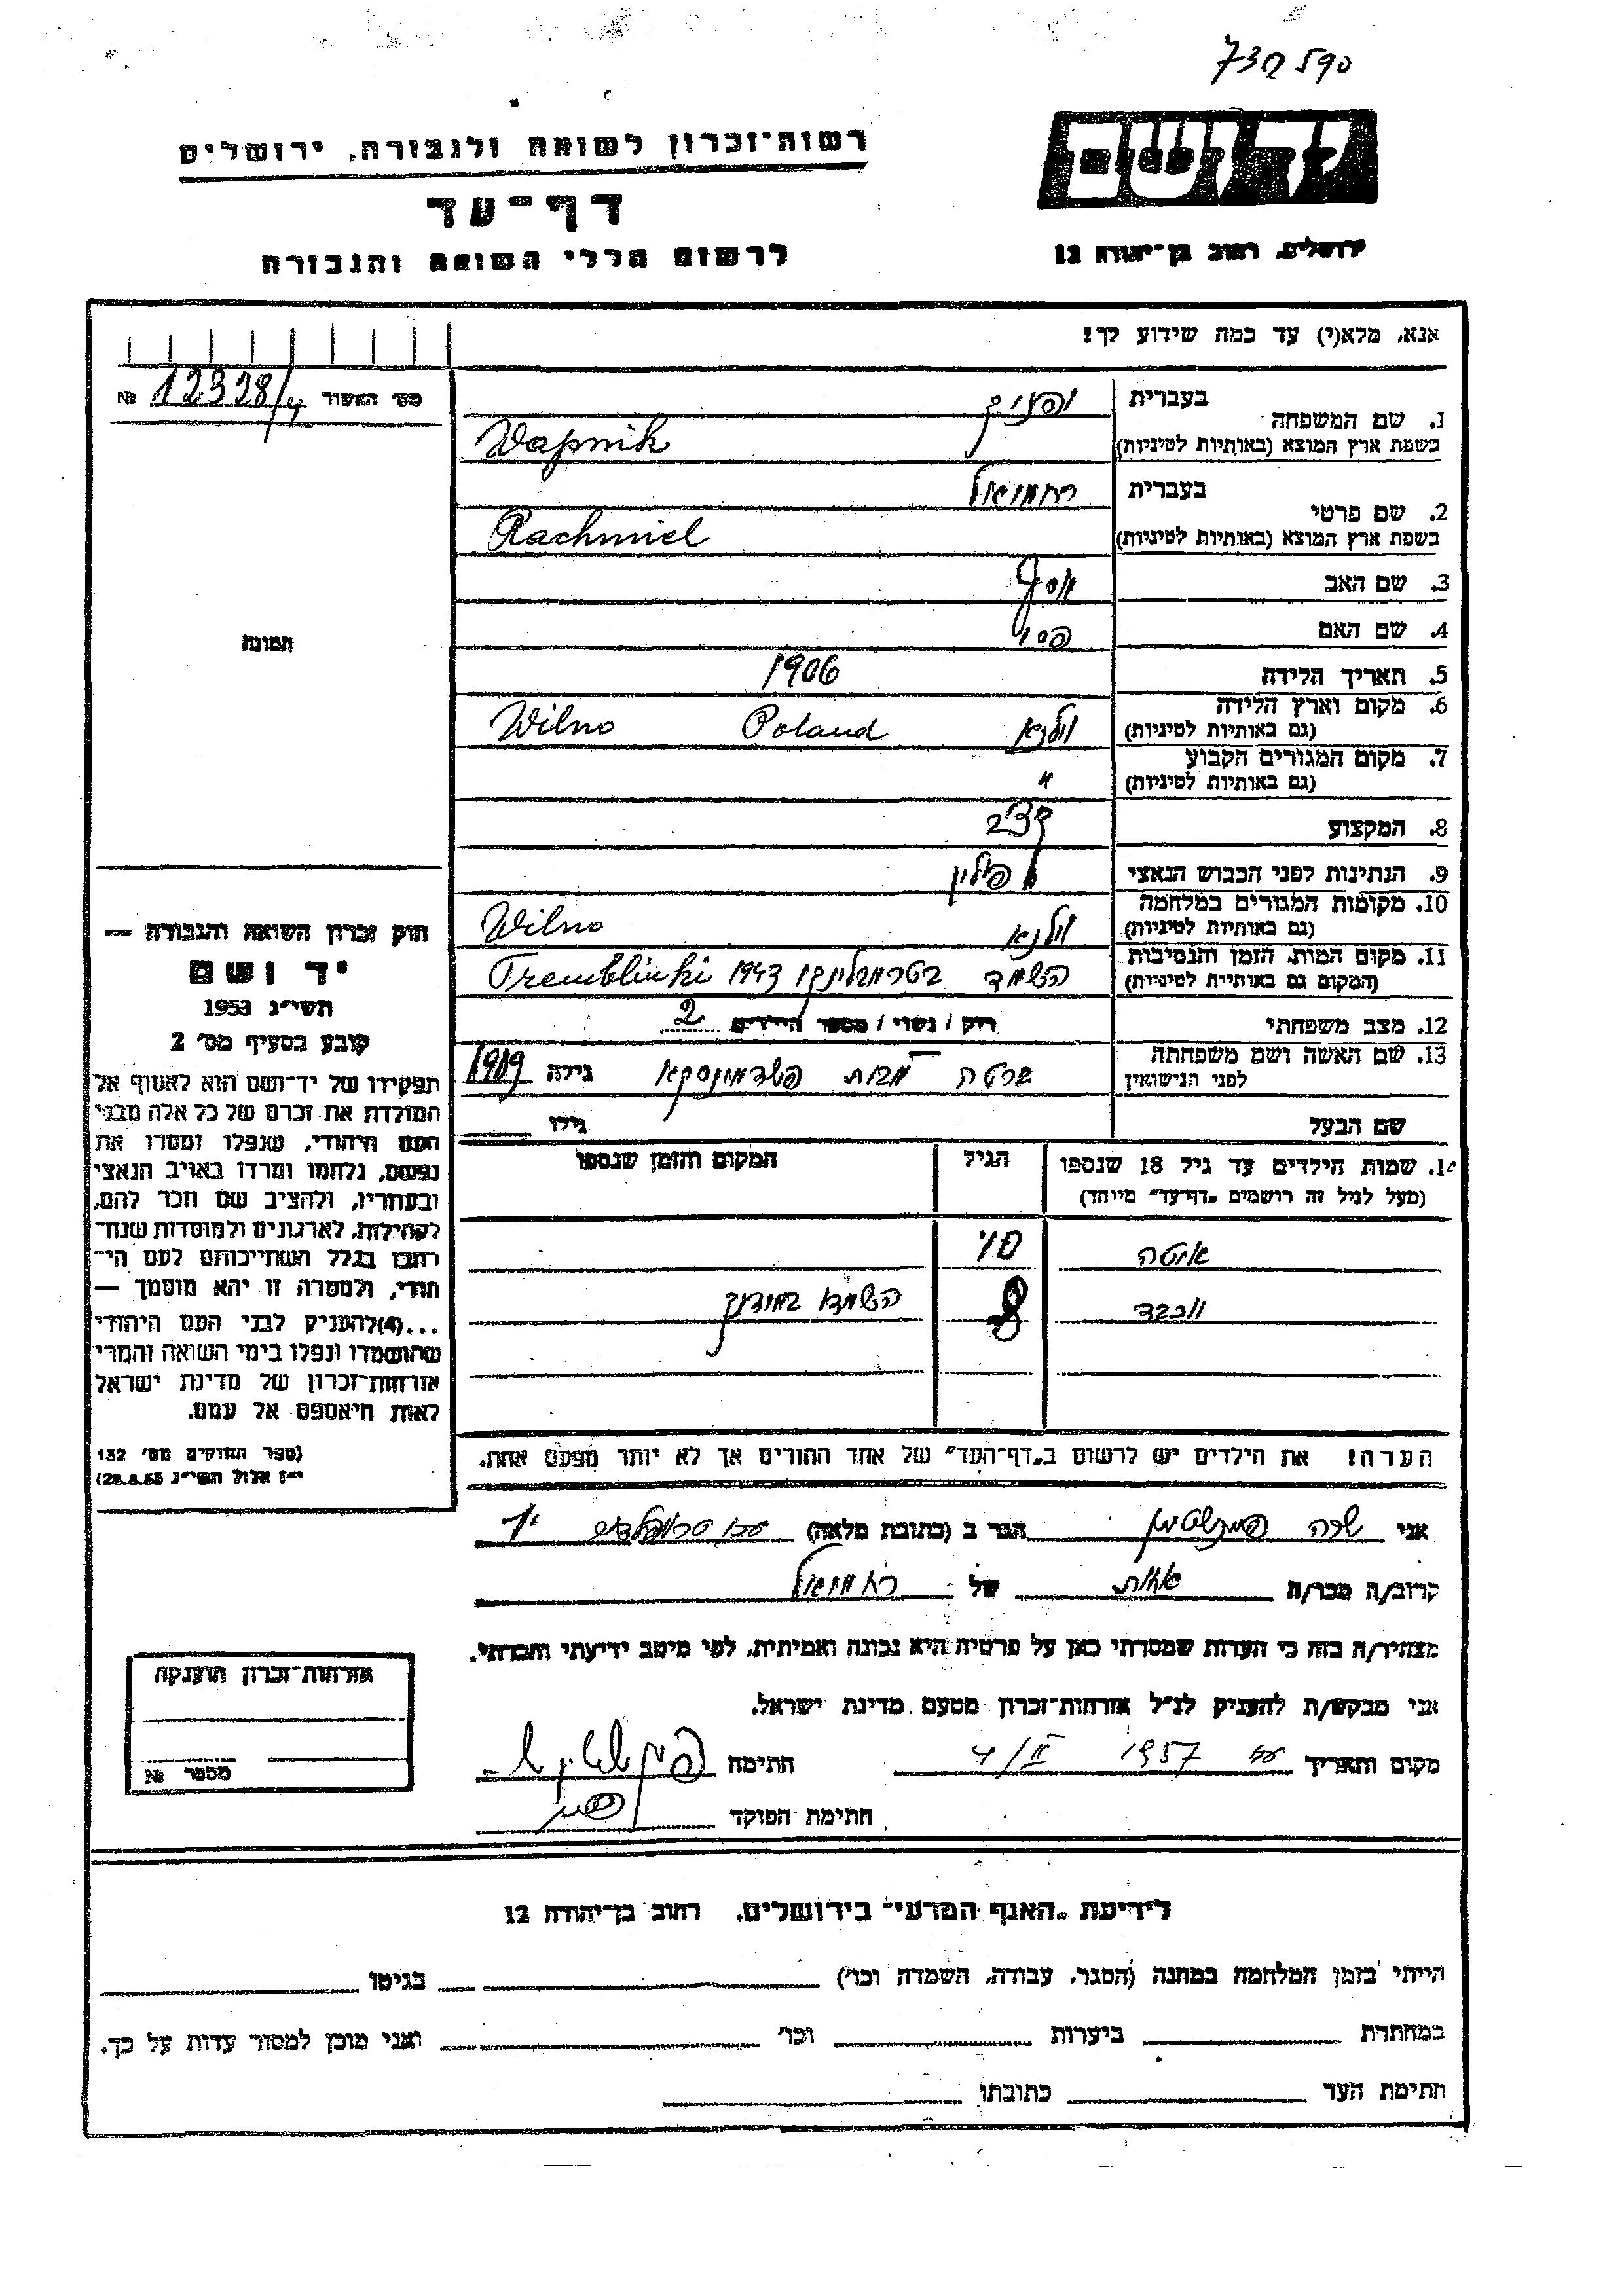 רשות־זכרון לשואה ולגבורה, ירושלים
דף־עד
לרשום חללי השואה והגבורה
יד ושם
ירושלים, רחוב בן־יהודה 12
אנא, מלא(י) עד כמה שידוע לך!
מס׳ האשור 12328/ №
1. שם המשפחה בעברית ופניק
בשפת ארץ המוצא (באותיות לטיניות) Wapnik
2. שם פרטי בעברית רחמיאל
בשפת ארץ המוצא (באותיות לטיניות) Rachmiel
3. שם האב יוסף
4. שם האם פסי
5. תאריך הלידה 1906
6. מקום וארץ הלידה (גם באותיות לטיניות) וילנא Poland Wilno
7. מקום המגורים הקבוע (גם באותיות לטיניות) "
8. המקצוע
9. הנתינות לפני הכבוש הנאצי פולין
10. מקומות המגורים במלחמה (גם באותיות לטיניות) וילנא Wilno
11. מקום המות, הזמן והנסיבות (המקום גם באותיות לטיניות) הושמד בטרמבלינקי 1943 Tremblinki
12. מצב משפחתי רוק / נשוי / מספר הילדים 2
13. שם האשה ושם משפחתה לפני הנישואין ברטה מבית גילה 1909
שם הבעל גילו
14. שמות הילדים עד גיל 18 שנספו הגיל המקום והזמן שנספו
(מעל לגיל זה רושמים „דף־עד" מיוחד)
איטה 10
יוכבד 8 הושמדו
הערה! את הילדים יש לרשום ב„דף־העד" של אחד ההורים אך לא יותר מפעם אחת.
תמונה
חוק זכרון השואה והגבורה —
יד ושם
תשי״ג 1953
קובע בסעיף מס׳ 2
תפקידו של יד־ושם הוא לאסוף אל
המולדת את זכרם של כל אלה מבני
העם היהודי, שנפלו ומסרו את
נפשם, נלחמו ומרדו באויב הנאצי
ובעוזריו, ולהציב שם וזכר להם,
לקהילות, לארגונים ולמוסדות שנח־
רבו בגלל השתייכותם לעם הי־
הודי, ולמטרה זו יהא מוסמך —
...(4)להעניק לבני העם היהודי
שהושמדו ונפלו בימי השואה והמרי
אזרחות־זכרון של מדינת ישראל
לאות היאספם אל עמם.
(ספר החוקים מס׳ 132
י״ז אלול תשי״ג 28.8.53)
אני שרה הגר ב (כתובת מלאה)
קרוב/ה מכר/ה אחות של רחמיאל
מצהיר/ה בזה כי העדות שמסרתי כאן על פרטיה היא נכונה ואמיתית, לפי מיטב ידיעתי והכרתי.
אני מבקש/ת להעניק לנ״ל אזרחות־זכרון מטעם מדינת ישראל.
מקום ותאריך 1957 4/II חתימה
חתימת הפוקד
אזרחות־זכרון הוענקה
מספר №
לידיעת „האגף המדעי" בירושלים, רחוב בן־יהודה 12
הייתי בזמן המלחמה במחנה (הסגר, עבודה, השמדה וכו׳) בגיטו
במחתרת ביערות וכו׳ ואני מוכן למסור עדות על כך.
חתימת העד כתובתו